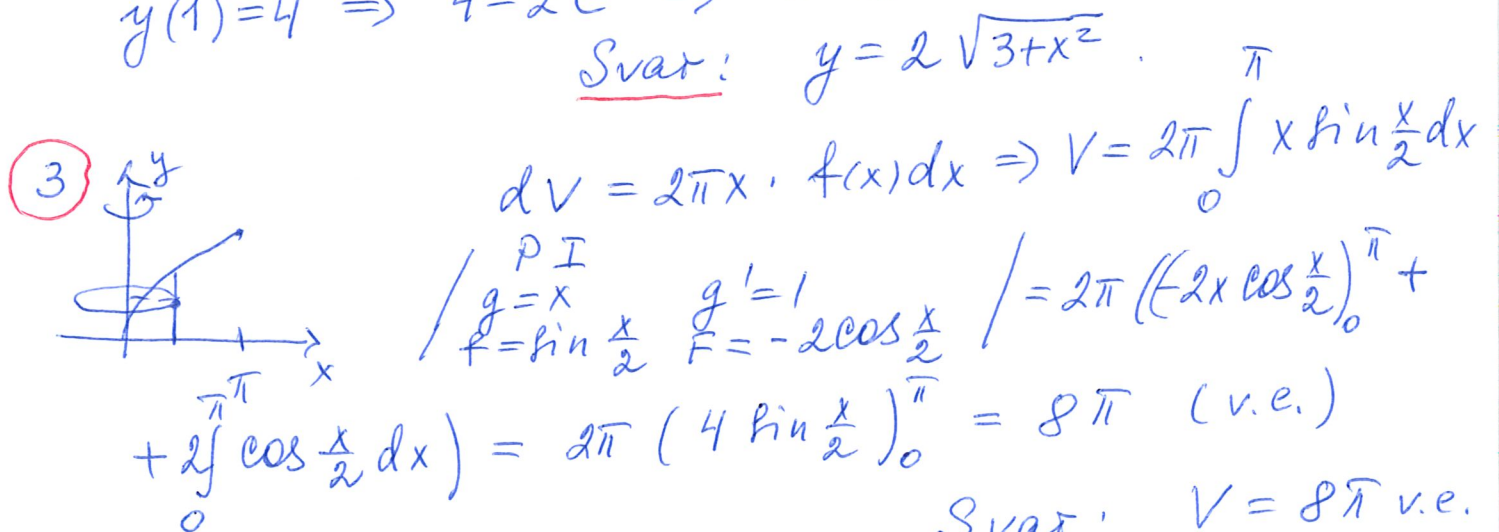 y(1)=4 => 4=2C
Svar: y = 2 √(3+x²).
3 y dV = 2πx · f(x)dx => V = 2π ∫₀^π x sin x/2 dx
PI
/ g = x g' = 1 / = 2π ((-2x cos x/2)₀^π +
f = sin x/2 F = -2cos x/2
x π
+ 2∫₀^π cos x/2 dx) = 2π (4 sin x/2)₀^π = 8π (v.e.)
Svar: V = 8π v.e.